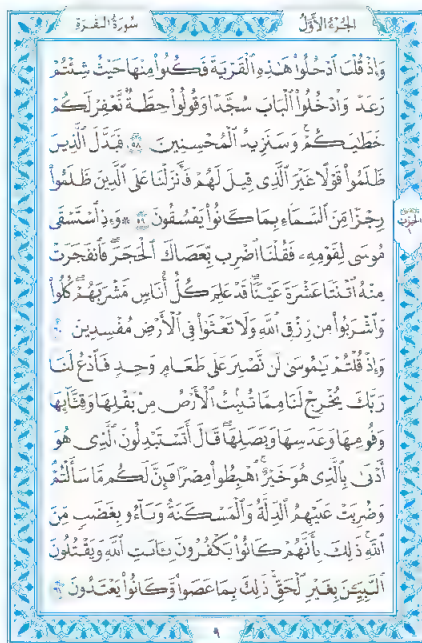 الجزء الأول سورة البقرة
وَإِذْ قُلْنَا ٱدْخُلُوا۟ هَٰذِهِ ٱلْقَرْيَةَ فَكُلُوا۟ مِنْهَا حَيْثُ شِئْتُمْ
رَغَدًا وَٱدْخُلُوا۟ ٱلْبَابَ سُجَّدًا وَقُولُوا۟ حِطَّةٌ نَّغْفِرْ لَكُمْ
خَطَٰيَٰكُمْ وَسَنَزِيدُ ٱلْمُحْسِنِينَ ٥٨ فَبَدَّلَ ٱلَّذِينَ
ظَلَمُوا۟ قَوْلًا غَيْرَ ٱلَّذِى قِيلَ لَهُمْ فَأَنزَلْنَا عَلَى ٱلَّذِينَ ظَلَمُوا۟
رِجْزًا مِّنَ ٱلسَّمَآءِ بِمَا كَانُوا۟ يَفْسُقُونَ ٥٩ ۞ وَإِذِ ٱسْتَسْقَىٰ
مُوسَىٰ لِقَوْمِهِۦ فَقُلْنَا ٱضْرِب بِّعَصَاكَ ٱلْحَجَرَ فَٱنفَجَرَتْ
مِنْهُ ٱثْنَتَا عَشْرَةَ عَيْنًا قَدْ عَلِمَ كُلُّ أُنَاسٍ مَّشْرَبَهُمْ كُلُوا۟
وَٱشْرَبُوا۟ مِن رِّزْقِ ٱللَّهِ وَلَا تَعْثَوْا۟ فِى ٱلْأَرْضِ مُفْسِدِينَ ٦٠
وَإِذْ قُلْتُمْ يَٰمُوسَىٰ لَن نَّصْبِرَ عَلَىٰ طَعَامٍ وَٰحِدٍ فَٱدْعُ لَنَا
رَبَّكَ يُخْرِجْ لَنَا مِمَّا تُنۢبِتُ ٱلْأَرْضُ مِنۢ بَقْلِهَا وَقِثَّآئِهَا
وَفُومِهَا وَعَدَسِهَا وَبَصَلِهَا قَالَ أَتَسْتَبْدِلُونَ ٱلَّذِى هُوَ
أَدْنَىٰ بِٱلَّذِى هُوَ خَيْرٌ ٱهْبِطُوا۟ مِصْرًا فَإِنَّ لَكُم مَّا سَأَلْتُمْ
وَضُرِبَتْ عَلَيْهِمُ ٱلذِّلَّةُ وَٱلْمَسْكَنَةُ وَبَآءُو بِغَضَبٍ مِّنَ
ٱللَّهِ ذَٰلِكَ بِأَنَّهُمْ كَانُوا۟ يَكْفُرُونَ بِـَٔايَٰتِ ٱللَّهِ وَيَقْتُلُونَ
ٱلنَّبِيِّـۧنَ بِغَيْرِ ٱلْحَقِّ ذَٰلِكَ بِمَا عَصَوا۟ وَّكَانُوا۟ يَعْتَدُونَ ٦١
٩